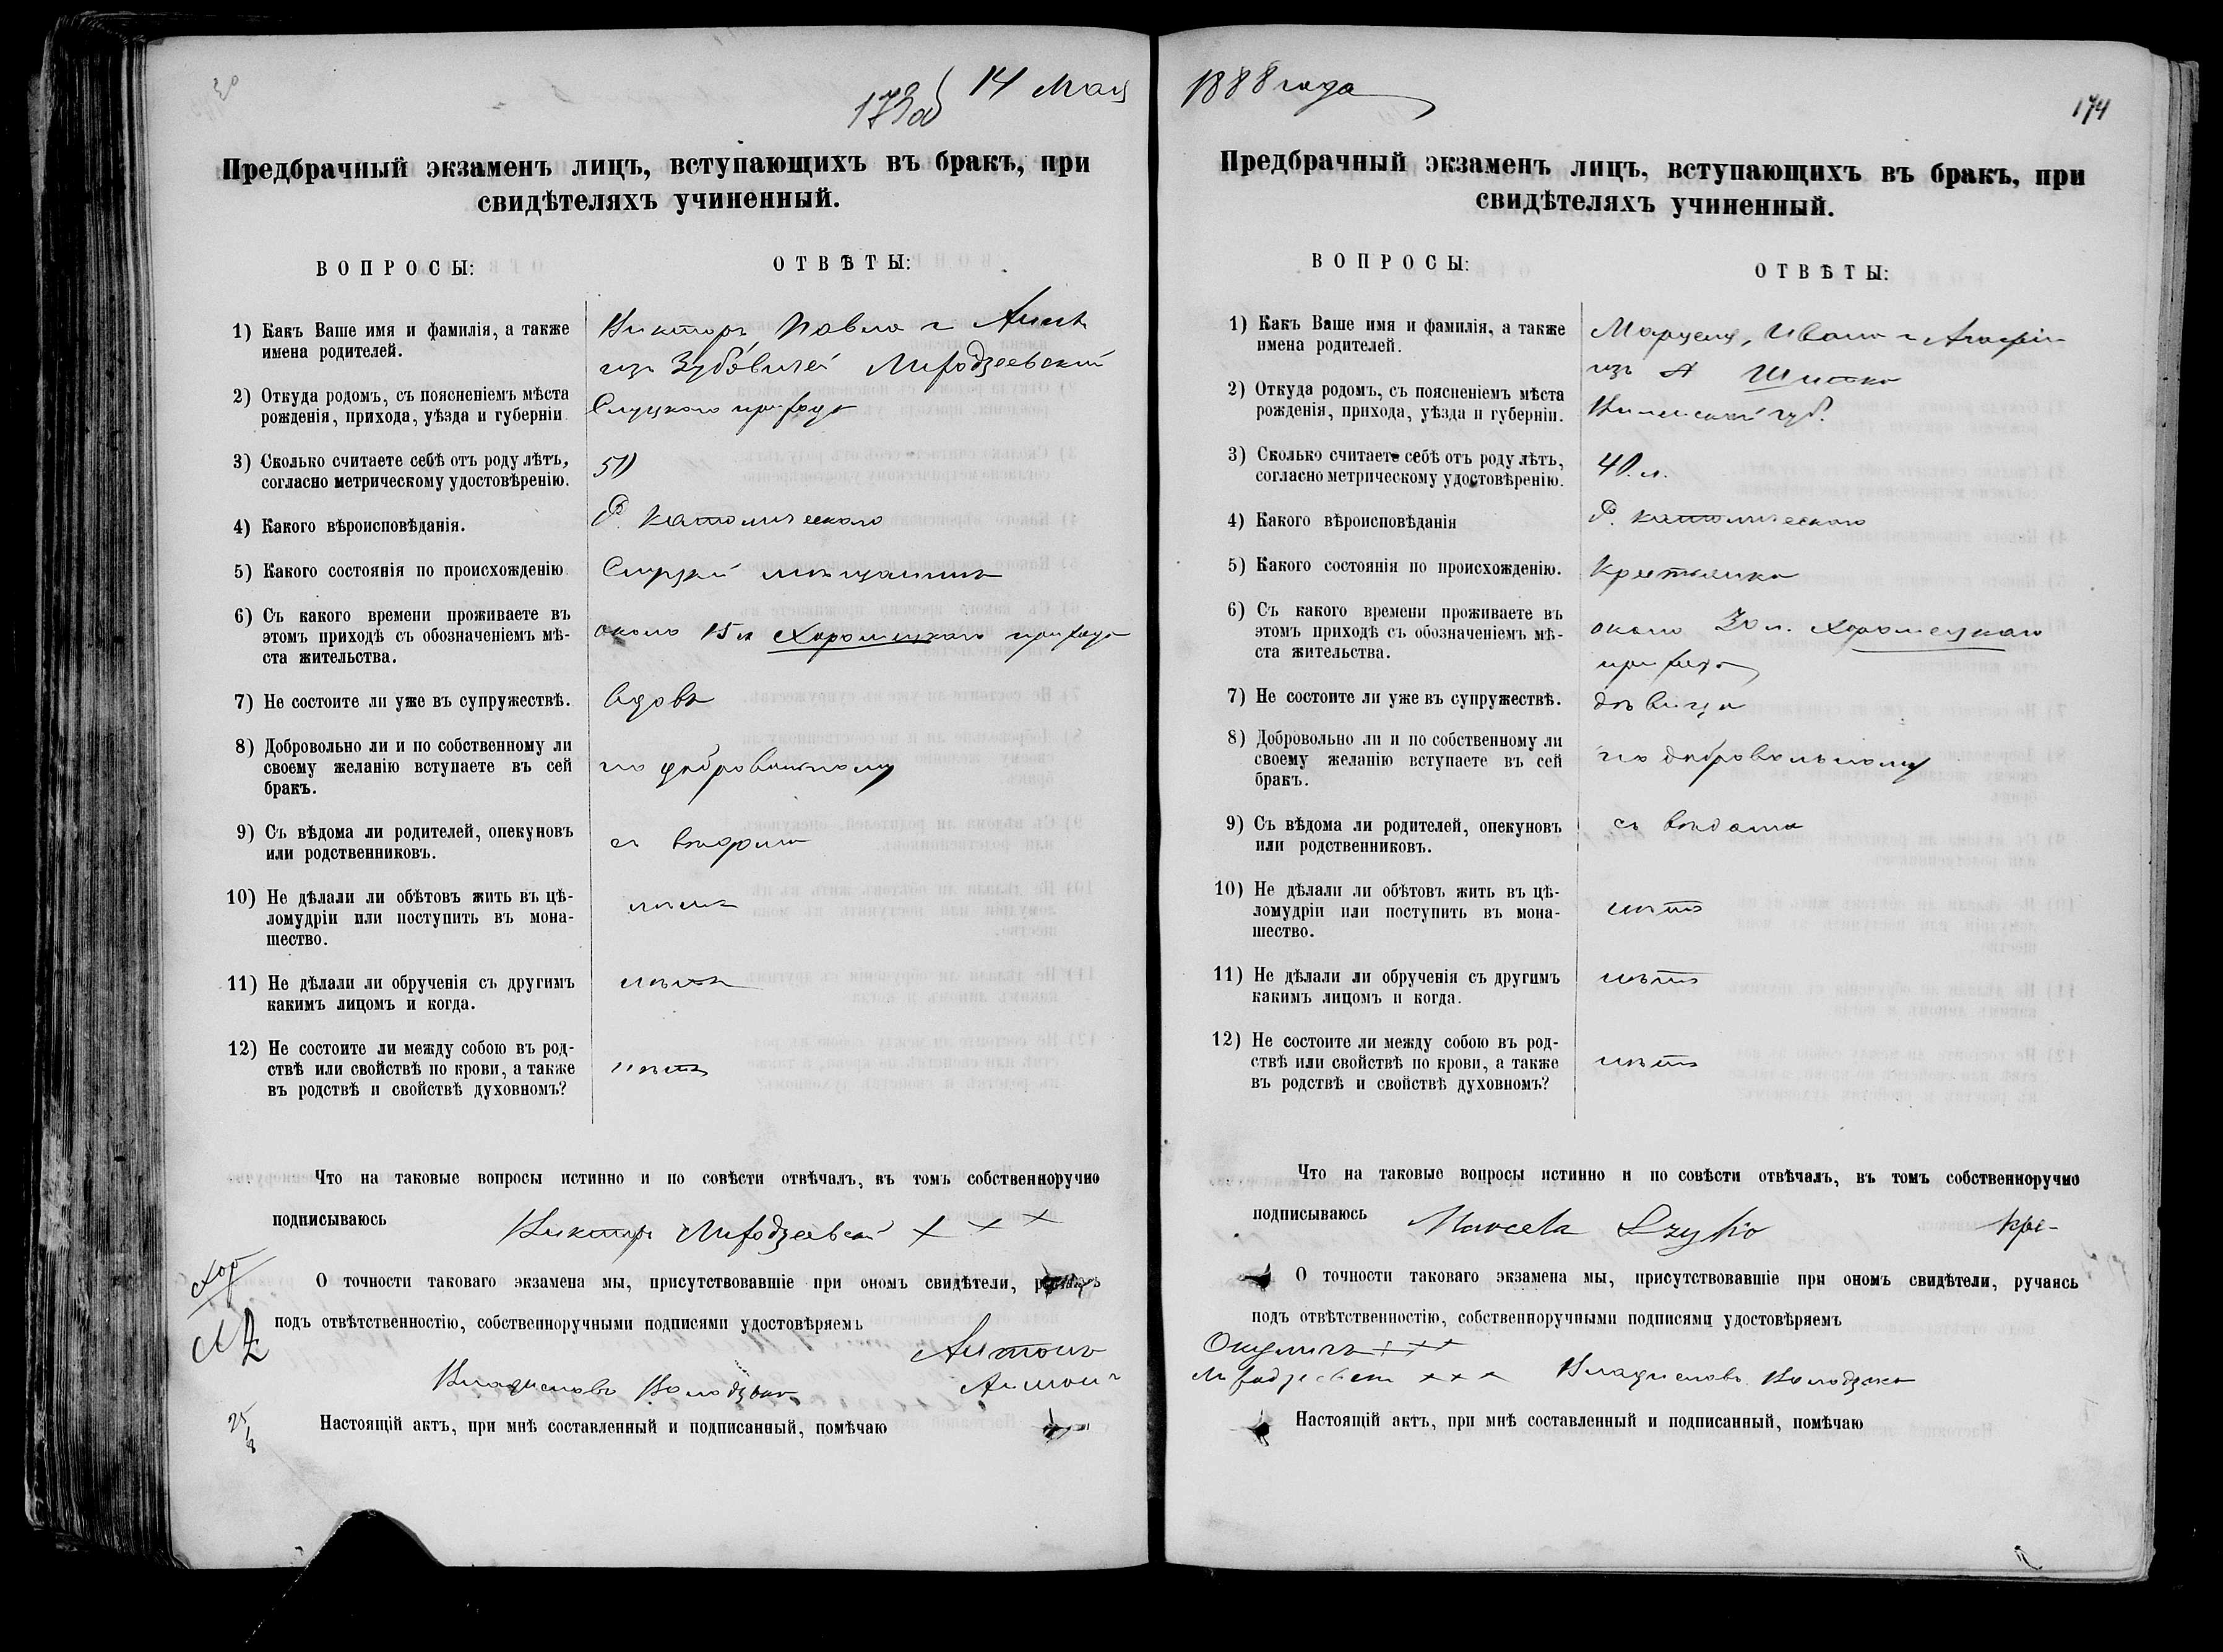 14 Мая
173об
Предбрачный экзаменъ лицъ, вступающихъ въ бракъ, при
свидѣтеляхъ учиненный.
ВОПРОСЫ:
ОТВѢТЫ:
1) Какъ Ваше имя и фамилія, а также
имена родителей.
Викторъ, Павла и Анны
изъ Зубовичей
2) Откуда родомъ, съ поясненіемъ мѣста
рожденія, прихода, уѣзда и губерніи
Слуцкаго прихода
3) Сколько считаете себѣ отъ роду лѣтъ,
согласно метрическому удостовѣренію.
4) Какого вѣроисповѣданія.
Р. Католическаго
5) Какого состоянія по происхожденію
Слуцкій мѣщанинъ
6) Съ какого времени проживаете въ
этомъ приходѣ съ обозначеніемъ мѣ-
ста жительства.
около 15 л Хоромецкаго прихода
7) Не состоите ли уже въ супружествѣ.
вдовъ
8) Добровольно ли и по собственному ли
своему желанію вступаете въ сей
бракъ.
по добровольному
9) Съ вѣдома ли родителей, опекуновъ
или родственниковъ.
съ вѣдома
10) Не дѣлали ли обѣтовъ жить въ цѣ-
ломудріи или поступить въ мона-
шество.
нѣтъ
11) Не дѣлали ли обрученія съ другимъ
какимъ лицомъ и когда.
нѣтъ
12) Не состоите ли между собою въ род-
ствѣ или свойствѣ по крови, а также
въ родствѣ и свойствѣ духовномъ?
нѣтъ
Что на таковые вопросы истинно и по совѣсти отвѣчалъ, въ томъ собственноручно
подписываюсь
Викторъ + + +
О точности таковаго экзамена мы, присутствовавшіе при ономъ свидѣтели, ручаясь
подъ отвѣтственностію, собственноручными подписями удостовѣряемъ
Антонъ
Владиславъ Володзько
Антонъ
Настоящій актъ, при мнѣ составленный и подписанный, помѣчаю
1888 года
174
Предбрачный экзаменъ лицъ, вступающихъ въ бракъ, при
свидѣтеляхъ учиненный.
ВОПРОСЫ:
ОТВѢТЫ:
1) Какъ Ваше имя и фамилія, а также
имена родителей.
Марцеля, Ивана и Агафіи
изъ А Шишко
2) Откуда родомъ, съ поясненіемъ мѣста
рожденія, прихода, уѣзда и губерніи.
Виленской губ.
3) Сколько считаете себѣ отъ роду лѣтъ,
согласно метрическому удостовѣренію.
40 л.
4) Какого вѣроисповѣданія
Р. Католическаго
5) Какого состоянія по происхожденію.
Крестьянка
6) Съ какого времени проживаете въ
этомъ приходѣ съ обозначеніемъ мѣ-
ста жительства.
около 30 л. Хоромецкаго
прихода
7) Не состоите ли уже въ супружествѣ.
дѣвица
8) Добровольно ли и по собственному ли
своему желанію вступаете въ сей
бракъ.
по добровольному
9) Съ вѣдома ли родителей, опекуновъ
или родственниковъ.
съ вѣдома
10) Не дѣлали ли обѣтовъ жить въ цѣ-
ломудріи или поступить въ мона-
шество.
нѣтъ
11) Не дѣлали ли обрученія съ другимъ
какимъ лицомъ и когда.
нѣтъ
12) Не состоите ли между собою въ род-
ствѣ или свойствѣ по крови, а также
въ родствѣ и свойствѣ духовномъ?
нѣтъ
Что на таковые вопросы истинно и по совѣсти отвѣчалъ, въ томъ собственноручно
подписываюсь
Marcela
О точности таковаго экзамена мы, присутствовавшіе при ономъ свидѣтели, ручаясь
подъ отвѣтственностію, собственноручными подписями удостовѣряемъ
Окуличъ + + +
+ + + Владиславъ Володзько
Настоящій актъ, при мнѣ составленный и подписанный, помѣчаю